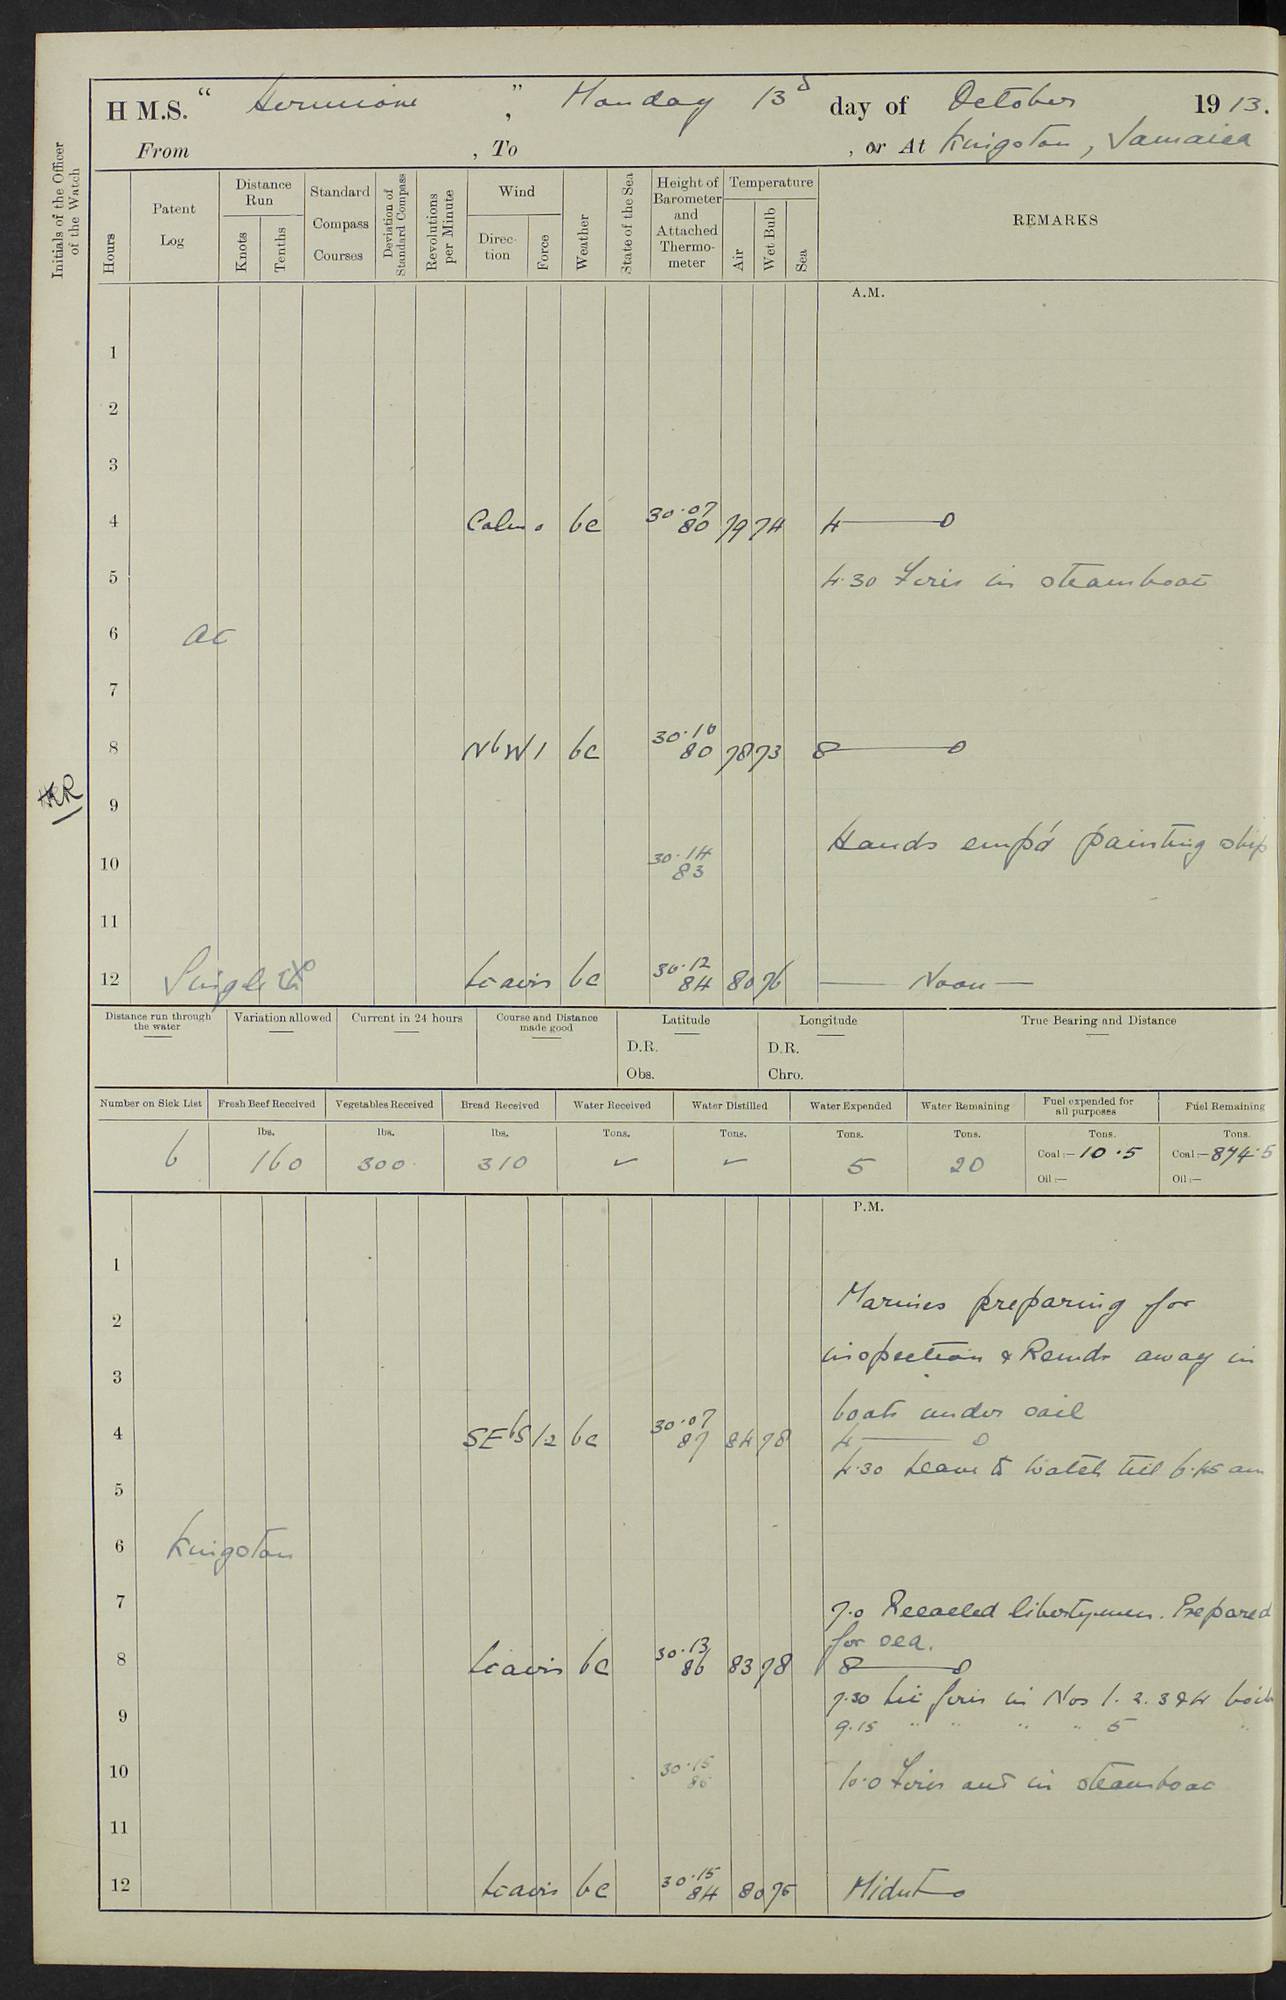 H M.S. " Hermione " , Monday 13th day of October 1913.
From , To , or At Kingston, Jamaica
Initials of the Officer of the Watch
Hours
Patent Log
Distance Run
Knots
Tenths
Standard Compass Courses
Deviation of Standard Compass
Revolutions per Minute
Wind
Direc-tion
Force
Weather
State of the Sea
Height of Barometer and Attached Thermo-meter
Temperature
Air
Wet Bulb
Sea
REMARKS
A.M.
1
2
3
4 Calm 0 bc 30.07 80 79 74 4 ——— 0
5 4.30 Fires in steamboat
6 At
7
8 NbW 1 bc 30.10 80 78 73 8 ——— 0
9
Hands emp'd painting ship
10 30.14 83
11
12 Single bc 30.12 84 80 76 —— Noon ——
Distance run through the water
Variation allowed
Current in 24 hours
Course and Distance made good
Latitude
D.R.
Obs.
Longitude
D.R.
Chro.
True Bearing and Distance
Number on Sick List
Fresh Beef Received
Vegetables Received
Bread Received
Water Received
Water Distilled
Water Expended
Water Remaining
Fuel expended for all purposes
Fuel Remaining
lbs. lbs. lbs. Tons. Tons. Tons. Tons. Tons. Tons.
6 160 300 310 ✓ ✓ 5 20 Coal:— 10.5 Coal:— 874.5
Oil:— Oil:—
P.M.
1
Marines preparing for
2
inspection & Remdr away in
3
boats under sail
4 SEbS 1/2 bc 30.07 87 84 78 4 ——— 0
4.30 Leave to Watch till 6.45 am
5
6 Kingston
7 7.0 Recalled libertymen. Prepared
for sea.
8 bc 30.13 86 83 78 8 ——— 0
7.30 Lit fires in Nos 1. 2. 3 & 4 boile
9 9.15 " " " " 5 "
10 30.15 86 10.0 Fires out in steamboat
11
12 bc 30.15 84 80 75 Midnt 0